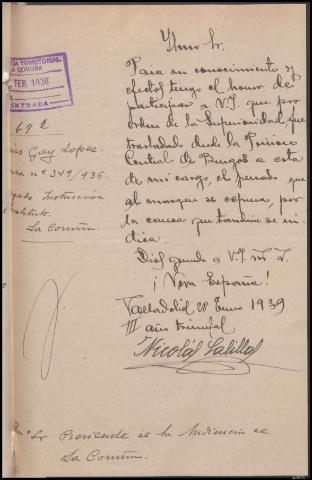 Ylmo Sr.
CIA TERRITORIAL
CORUÑA
FEB. 1939
ENTRADA
Para su conocimiento y
efectos tengo el honor de
participar a V.I. que por
orden de la Superioridad, fue
trasladado desde la Prision
Central de Burgos a esta
de mi cargo, el penado que
al margen se expresa, por
la causa que tambien se in
dica.
Gay Lopez
nº 349/936
Instruccion
La Coruña
Dios guarde a V.I. m. a.
¡Viva España!
Valladolid 28 Enero 1939
III año triunfal
Nicolás
Sr Presidente de la Audiencia de
La Coruña.